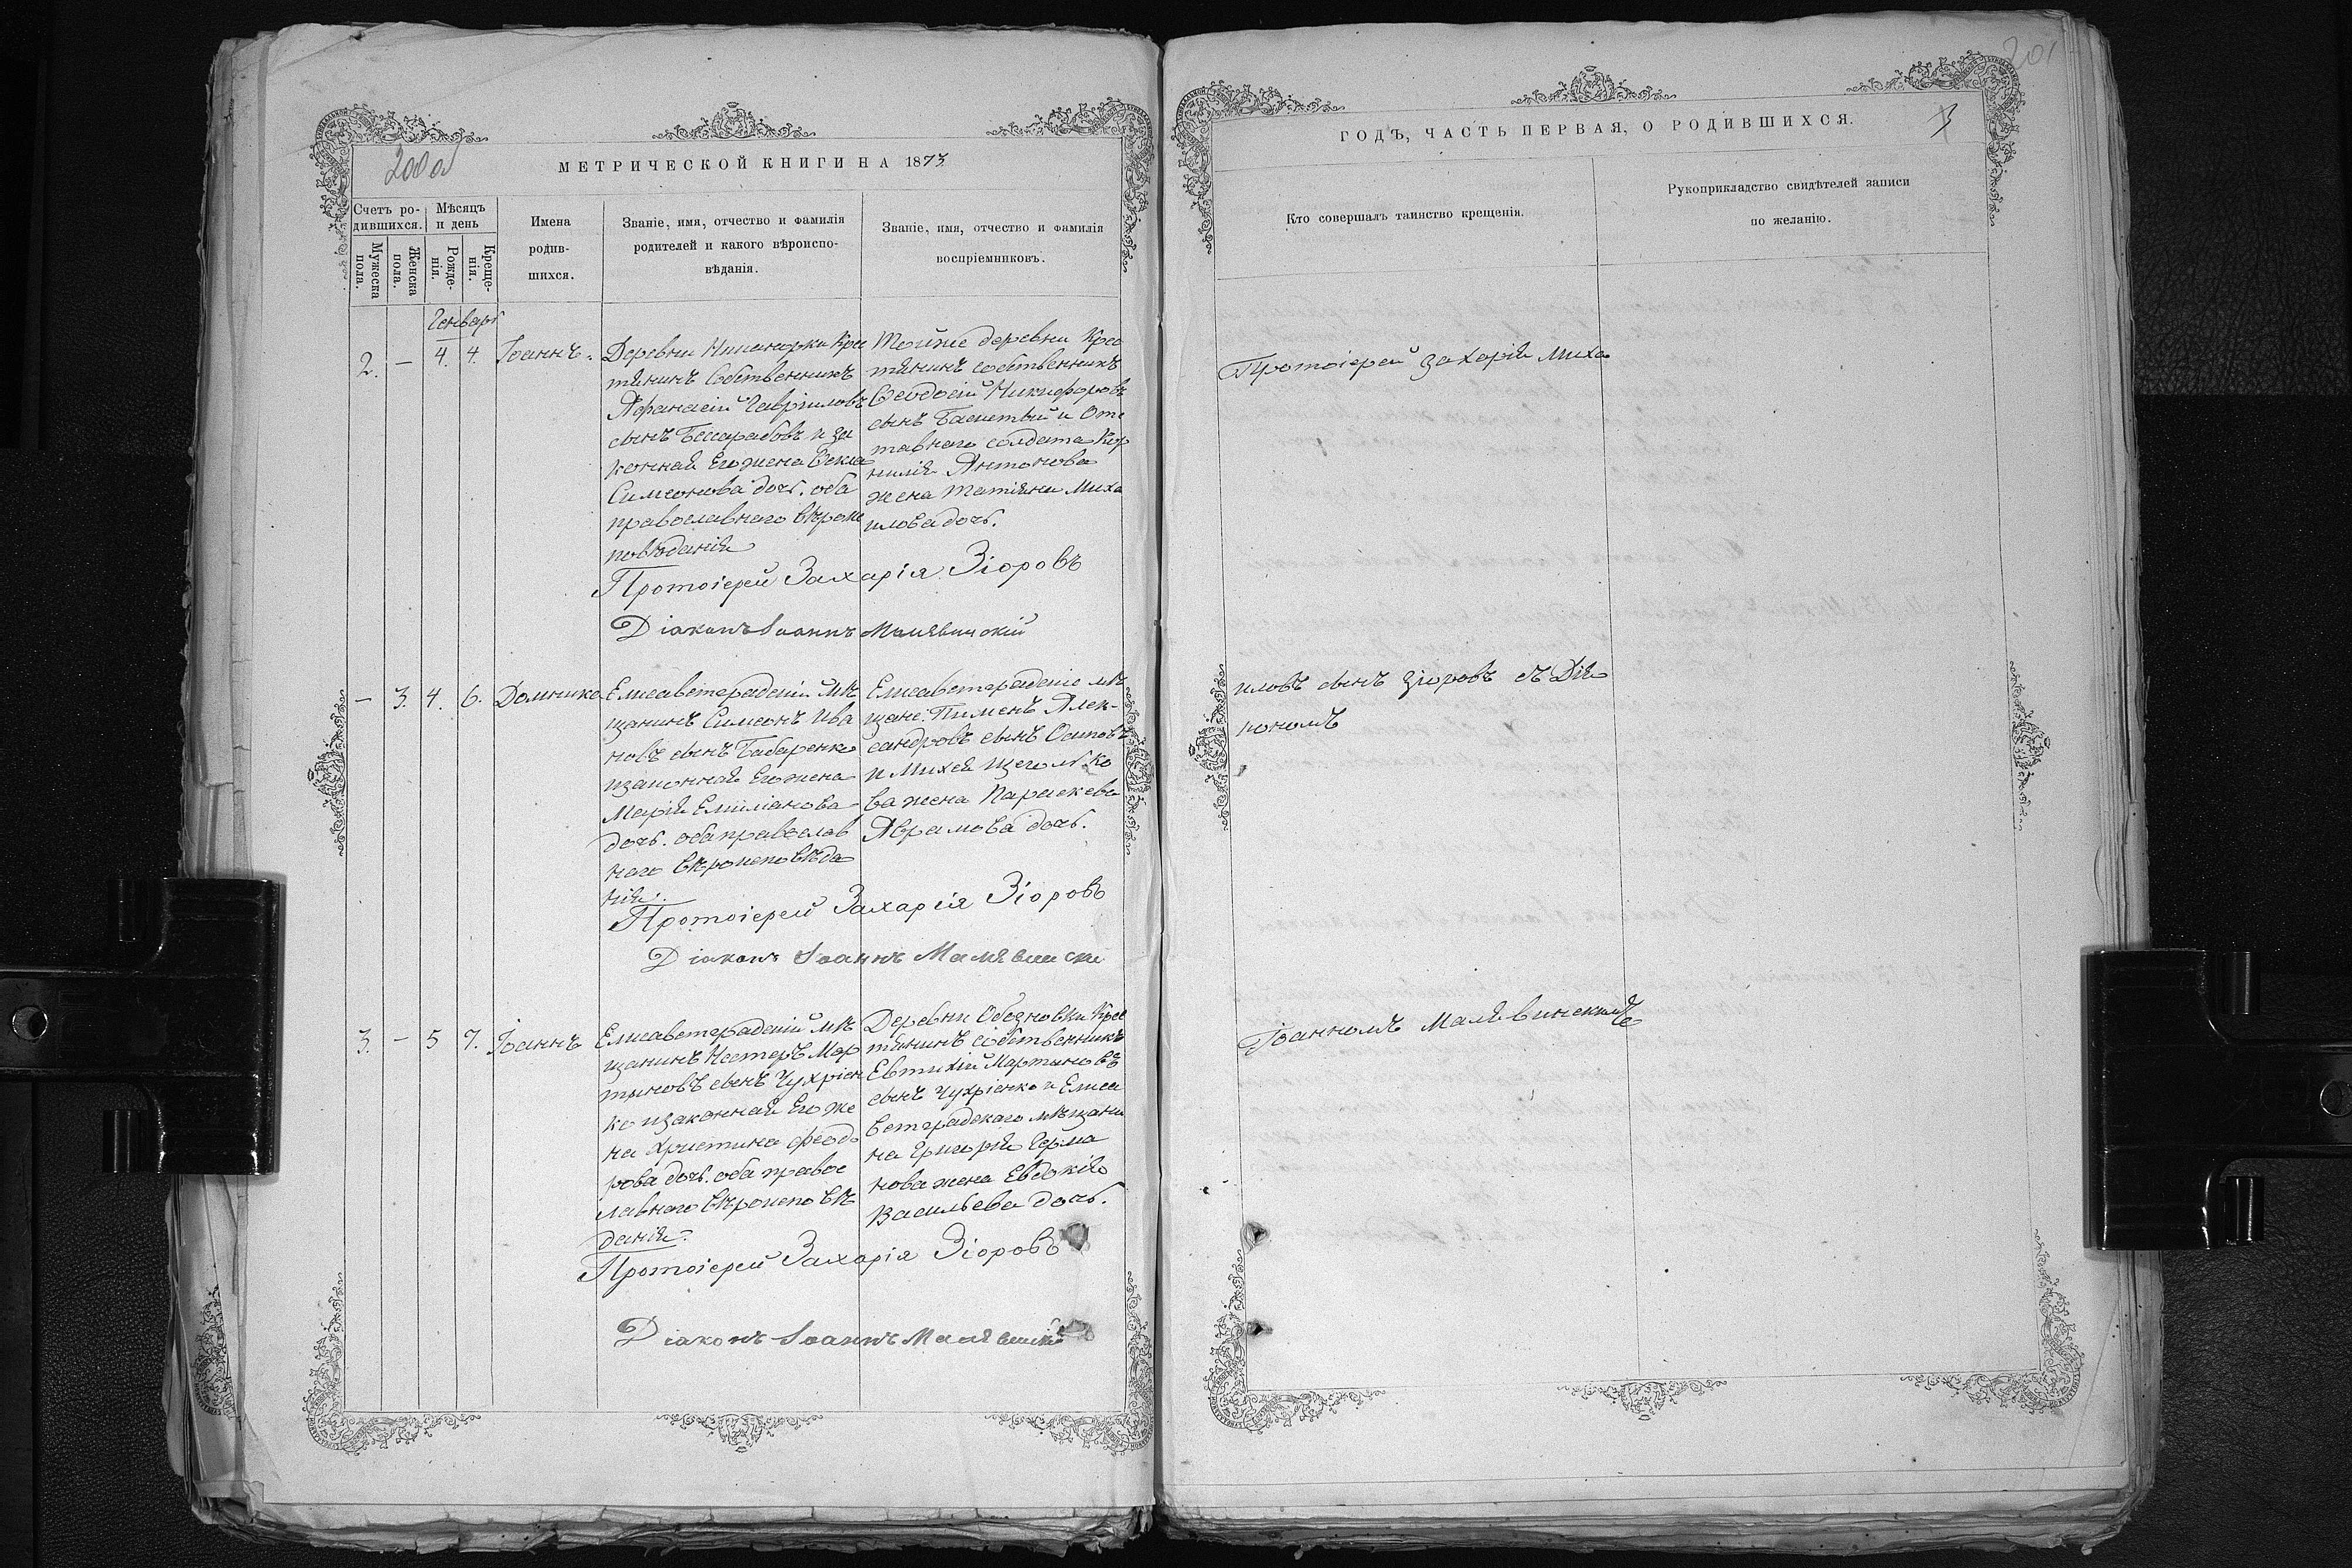 200 об
МЕТРИЧЕСКОЙ КНИГИ НА 1873
Счетъ ро-
дившихся.
Мѣсяцъ
и день
Мужеска
пола.
Женска
пола.
Рожде-
нія.
Креще-
нія.
Имена
родив-
шихся.
Званіе, имя, отчество и фамилія
родителей и какого вѣроиспо-
вѣданія.
Званіе, имя, отчество и фамилія
воспріемниковъ.
Генварь
2. — 4. 4. Іоаннъ.
Деревни Кре
тянинъ Собственникъ
Афанасій Гавріиловъ
сынъ Бессарабовъ и за
конная Его жена Ѳекла
Симеонова дочь. оба
православнаго вѣроис
повѣданія
Тойже деревни Крес
тянинъ собственникъ
Ѳеодосій Никифоровъ
сынъ и Отс
тавнаго солдата Кор
нилія Антонова
жена Татіяна Миха
илова дочь.
Протоіерей Захарія Зіоровъ
Діаконъ Іоаннъ Малявинскій
— 3. 4. 6. Домника
Елисаветградскій мѣ
щанинъ Симеонъ Ива
новъ сынъ Табаренко
изаконная Его жена
Марія Емиліанова
дочь. оба православ
наго вѣроисповѣда
нія.
Елисаветградскіе мѣ
щане: Пименъ Алек-
сандровъ сынъ Осиповъ
и Михея Щеголько
ва жена Параскева
Аврамова дочь.
Протоіерей Захарія Зіоровъ
Діаконъ Іоаннъ Малявински
3. — 5 7. Іоаннъ
Елисаветградскій мѣ
щанинъ Нестеръ Мар
тыновъ сынъ Чухріен
ко изаконная Его же
на Христина Феодо
рова дочь. оба правос
лавнаго вѣроисповѣ
данія.
Деревни Обозновки Крес
тянинъ собственникъ
Евтихій Мартыновъ
сынъ Чухріенко и Елиса
ветградскаго мѣщани
на Григорія Герма
нова жена Евдокія
Васильева дочь.
Протоіерей Захарія Зіоровъ
Діаконъ Іоаннъ Малявинскій
201
3
ГОДЪ, ЧАСТЬ ПЕРВАЯ, О РОДИВШИХСЯ.
Кто совершалъ таинство крещенія.
Рукоприкладство свидѣтелей записи
по желанію.
Протоіерей Захарія Миха
иловъ сынъ Зіоровъ съ Діа
кономъ
Іоанномъ Малявинскимъ